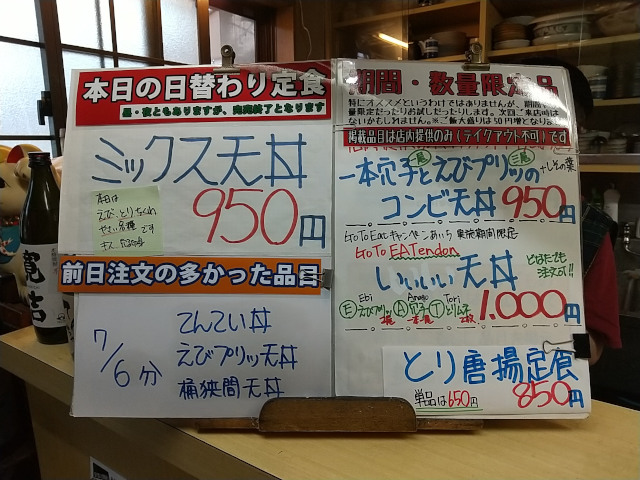 本日の日替わり定食
昼・夜ともありますが、完売終了となります
ミックス天丼
950円
本日は
えび、とりもくれ
やさい各種
です
前日注文の多かった品目
7/6分
てんてい丼
えびプリッツ天丼
桶狭間天丼
期間・数量限定品
特にオススメというわけではありませんが、期間
量限定だったりお試しだったりします。次回ご来店時は
ないかもしれません。※ご飯大盛りは50円増となりま
掲載品目は店内提供のみ(テイクアウト不可)です
一本穴子とえびプリッツの
一尾
三尾
+しその葉
コンビ天丼 950円
Go To Eatキャンペーンあいち 実施期間限定
Go To EATendon
いいいい天丼
どなたでも
注文可!!
Ebi Anago Tori
E えびプリッツ A 穴子 T とりムネ
1,000円
とり唐揚定食
単品は650円 850円